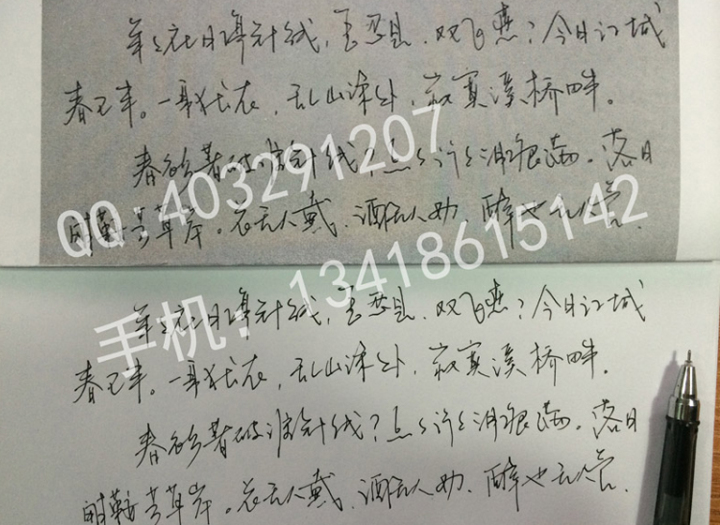 年年社日停针线,怎忍见,双飞燕?今日江城
春已半。一身犹在,乱山深处,寂寞溪桥畔。
春衫著破谁针线?点点行行泪痕满。落日
解鞍芳草岸。花无人戴,酒无人劝,醉也无人管.
QQ:403291207
手机:13418615142
年年社日停针线,怎忍见,双飞燕?今日江城
春已半。一身犹在,乱山深处,寂寞溪桥畔。
春衫著破谁针线?点点行行泪痕满。落日
解鞍芳草岸。花无人戴,酒无人劝,醉也无人管.